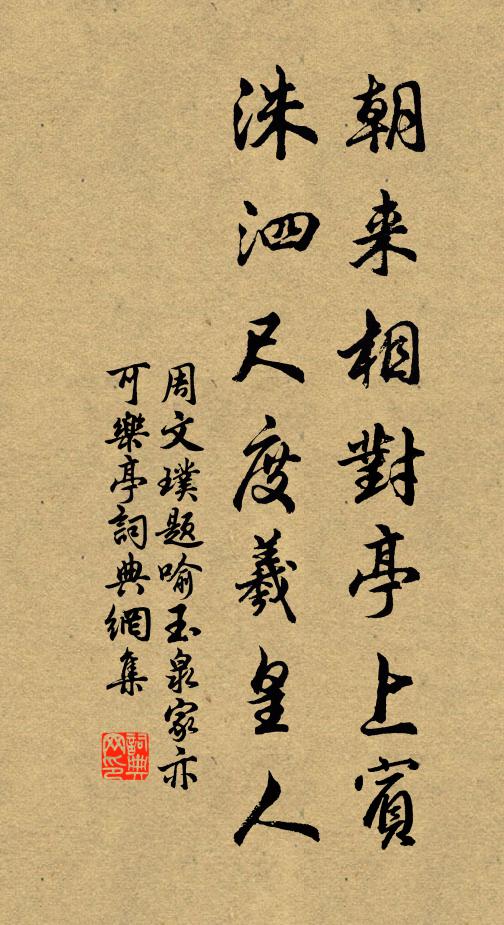 朝来相對亭上賓
洙泗尺度羲皇人
周文璞題喻玉泉家亦
可樂亭詞典網集
詞典
网印